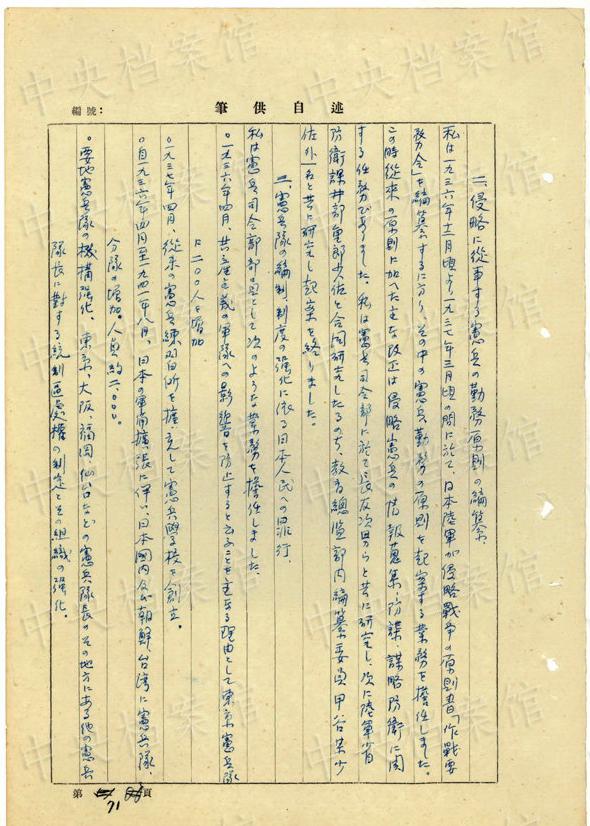 述自供筆
編號：
二、侵略に從事する憲兵の勤務原則の編纂、
私は一九三六年十一月頃より一九三七年三月頃の間に於て、日本陸軍が侵略戰爭の原則書「作戰要
務令」を編纂するに方り、その中の憲兵勤務の原則を起案する業務を擔任しました。
この時從來の原則に加へた主な改正は侵略憲兵の情報蒐集、防諜、謀略防衛に関
する任務でありました。私は憲兵司令部に於て長友次男らと共に研究し、次に陸軍省
防衛課井部重郎少佐と合同研究したるのち、教育總監部内編纂委員甲谷 少
佐外一名と共に研究し起案を終りました。
三、憲兵隊の編制、制度の強化に依る日本人民への罪行、
私は憲兵司令部部員として次のような業務を擔任しました、
○一九三六年四月、共產主義の軍隊への影響を防止すると云ふことを主なる理由として東京憲兵隊
に二〇〇人を増加
○一九三七年四月、從來の憲兵練習所を擴充して憲兵學校を創立。
○自一九三六年四月至一九四一年八月、日本の軍備擴張に伴い、日本國内及朝鮮、台湾に憲兵隊、
分隊の増加。人員約二,〇〇〇。
○要地憲兵隊の機構強化、東京、大阪、福岡、仙台などの憲兵隊長のその地方にある他の憲兵
隊長に對する統制區處權の制定とその組織の強化。
第 71 頁
中央档案馆